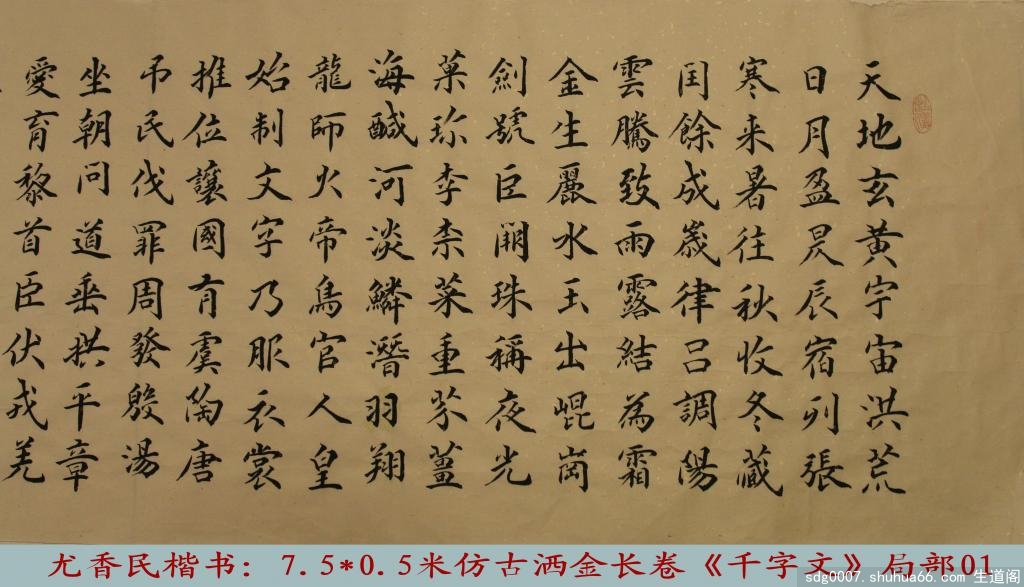 天地玄黃宇宙洪荒
日月盈昃辰宿列張
寒来暑往秋收冬藏
閏餘成歲律吕調陽
雲騰致雨露結為霜
金生麗水玉出崐崗
劍號巨闕珠稱夜光
菓珍李柰菜重芥薑
海鹹河淡鱗潛羽翔
龍師火帝鳥官人皇
始制文字乃服衣裳
推位讓國有虞陶唐
吊民伐罪周發殷湯
坐朝問道垂拱平章
愛育黎首臣伏戎羌
尤香民楷书：7.5*0.5米仿古洒金长卷《千字文》局部01
sdg0007.shuhua66.com 生道阁